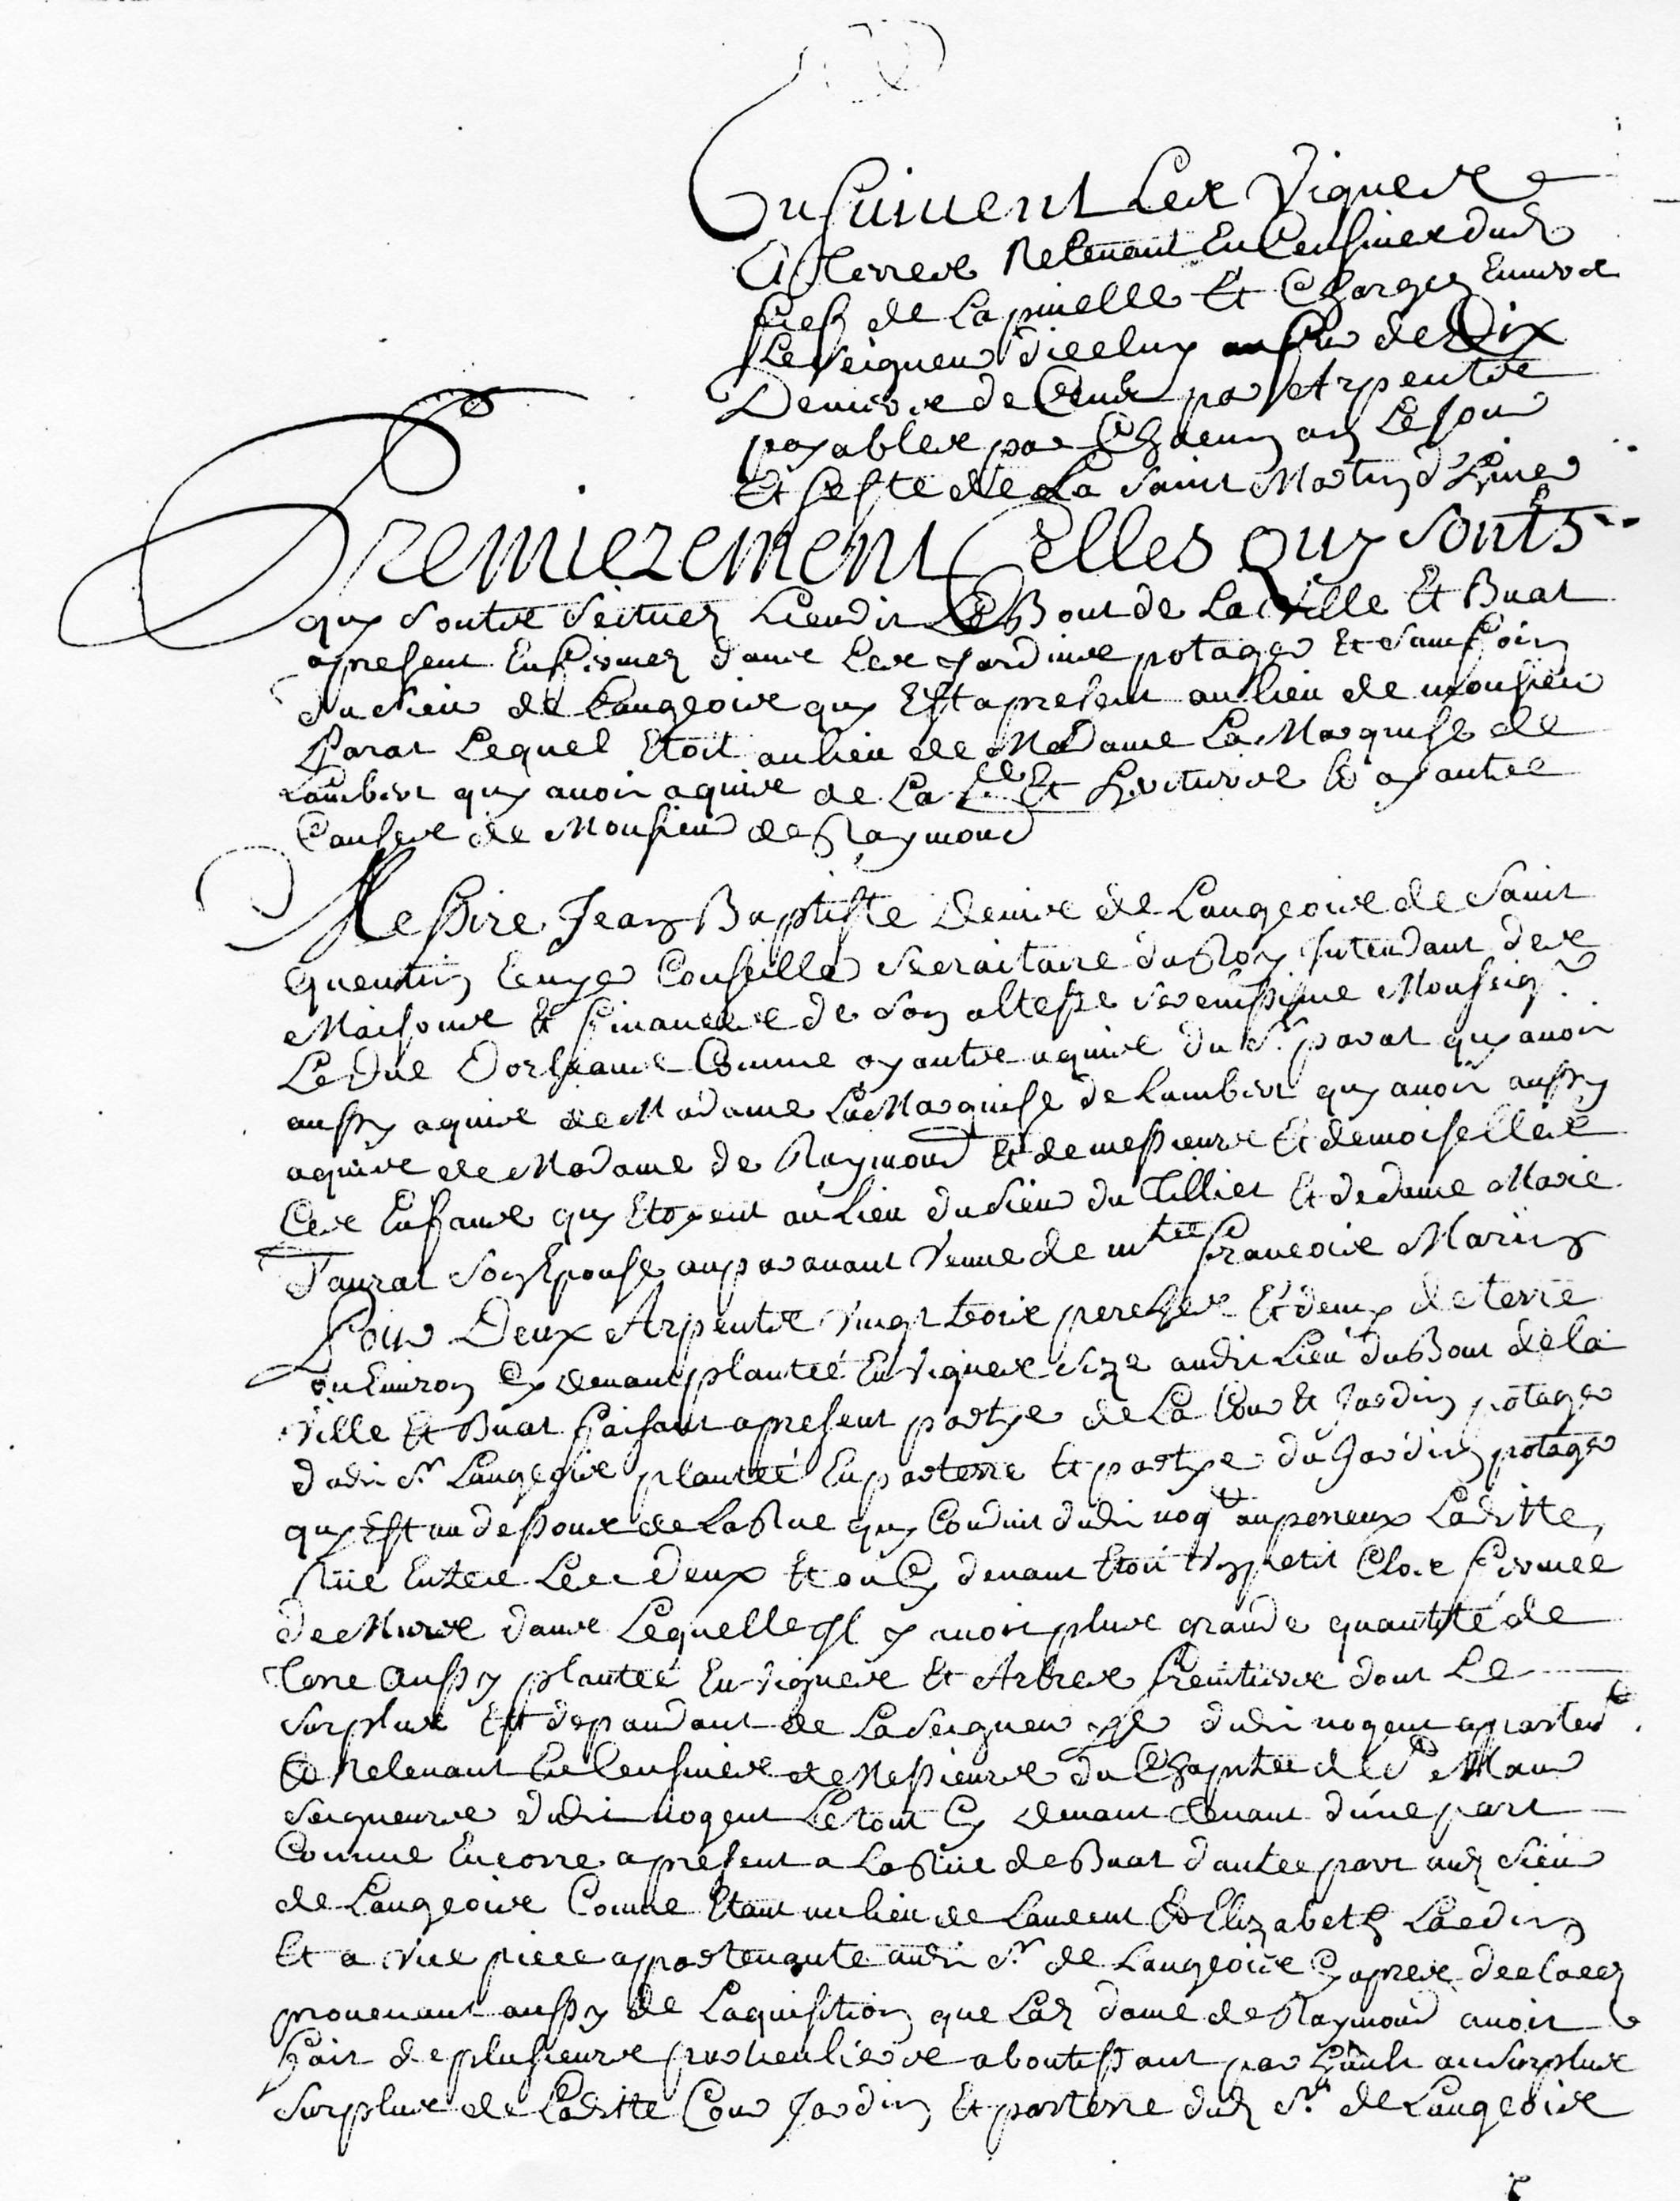 Ensuivent Les Vignes
Et Terres Relevant En Censives dud
fief de Lapinelle Et Chargez Envers
Le Seigneur dicelluy de Dix
Deniers de Cens par Arpents
payables par Chacun an Le Jour
Et feste de La Saint Martin d'hiver
Premierement Celles quy sonts
quy sonts scituez Lieudit Le Bout de La Ville Et Buat
apresent Enfermez dans Les Jardins potager Et
du sieur de Langeois quy Est apresent au lieu de monsieur
Parat Lequel Etoit au lieu de Madame La Marquise de
Lambert quy avoit aquis de La Et heritiers Et ayants
Causes de Monsieur de Raymond
Messire Jean Baptiste denis de Langeois de Saint
quentin Ecuyer Conseiller Secraitaire du Roy Intendant des
Maisons Et finances de Son altesse Serenissime Monseigr
Le Duc Dorleans Comme ayants aquis du Sr parat quy avoit
aussy aquis de Madame La Marquise de Lambert quy avoit aussy
aquis de Madame de Raymond Et de messieurs Et demoiselles
Ces Enfans quy Etoyent au Lieu du sieur du Tilliet Et de dame Marie
Taurat Son Epouse auparavant Veuve de mtre francois Marin
Pour Deux Arpents Vingt trois perches Et demy de terre
ou Environ Cy devant plantée En Vignes size audit Lieu du Bout dela
Ville Et Buat faisant apresent partye de La Cour Et Jardin potager
dudit Sr Langeois plantée En parterre Et partye du Jardin potager
quy Est au dessous de La Rue quy Conduit dudit nogt au perreux Laditte
Rüe Entre Les deux Et ou Cy devant Etoit Un petit Clos fermée
de Murs dans Lequelle Il y avoit plus grande quantité de
terre Aussy plantée En Vignes Et Arbres fruitiers dont Le
surplus Est depandant de La Seigneurye dudit nogent apartent
Et Relevant En Censives de Messieurs du Chapitre de St Maur
Seigneurs dudit nogent Le tout Cy devant tenant d'une part
Comme Encorre apresent a La Rüe de Buat dautre part aud sieur
de Langeois Comme Etant au lieu de Laurent Et Elizabeth Lardin
Et a Une piece appartenante audit Sr de Langeois Cy apres declarez
provenant aussy de Laquisition que Lad dame de Raymond avoit
fait de plusieurs particuliers aboutissant par hault au Surplus
Surplus de Laditte Cour Jardin Et parterre dud Sr de Langeois